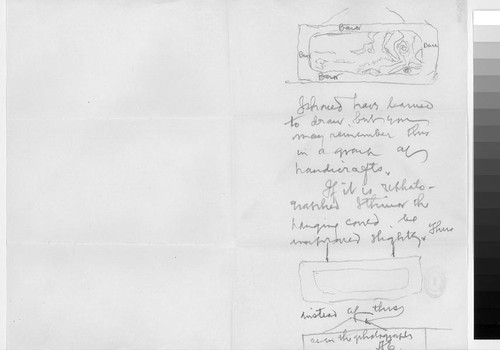 Brass
Brass
Brass
I should have learned
to draw, but you
may remember this
in a group of
handicrafts.
If it is rephoto-
graphed I think the
hanging could be
improved slightly. Thus
instead of this
as in the photographs